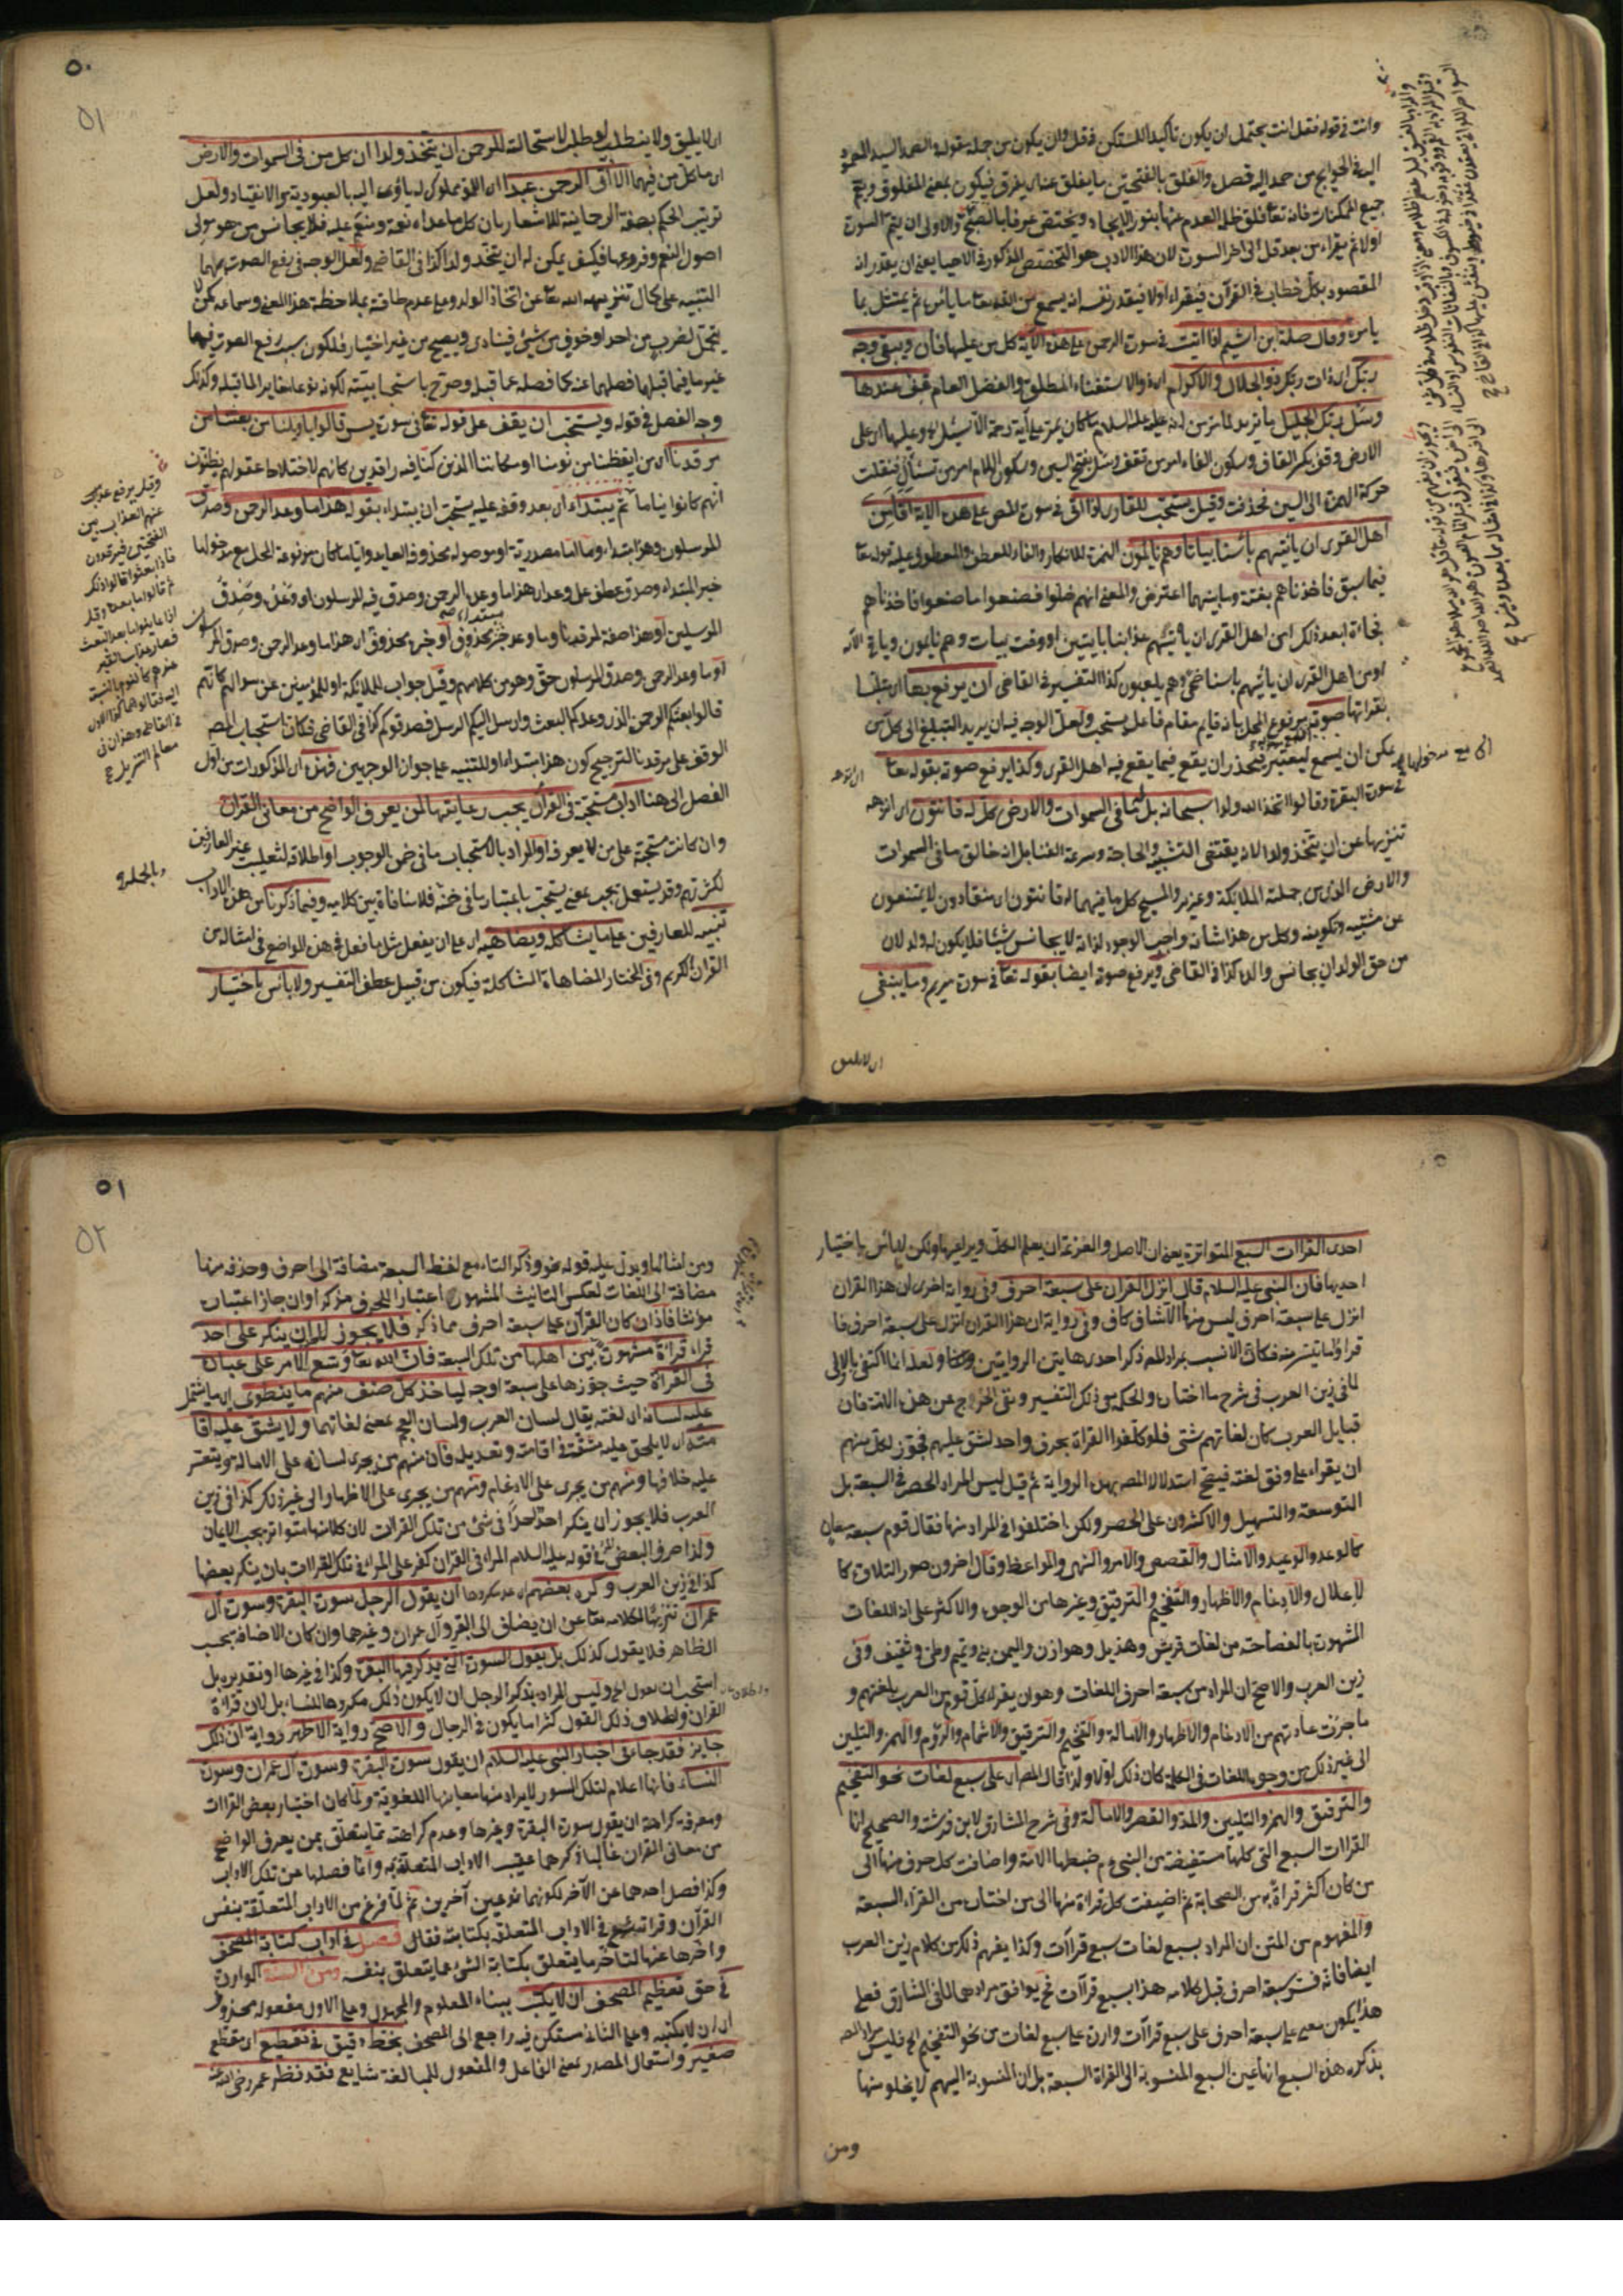 وانت في قوله فقل انت يحتمل ان يكون تأكيدا للمستكن في قل وان يكون من جملة مقوله والصمد السيد المصمود
اليه في الحوايج من صمد اليه قصد والفلق بالفتحتين ما يفلق عنه اي يفرق فيكون بمعنى المفلوق ويعم
جميع الممكنات فانه تعا فلق ظلمة العدم عنها بنور الايجاد ويختص عرفا بالصبح والاولى ان يتم السورة
اولا ثم يقراء من بعد قل الى اخر السورة لان هذا الادب هو التخصيص المذكور في الاحيا يعني ان يقدر انه
المقصود بكل خطاب في القرآن فيقراء اولا فيقدر نفسه انه يسمع من الله تعا ما يأمره ثم يمتثل بما
يأمره وقال صلة ابن اشيم اذا اتيت في سورة الرحمن على هذه الآية كل من عليها فان ويبقى وجه
ربك اي ذات ربك ذو الجلال والاكرام اي ذو الاستغناء المطلق والفضل العام فقف عندها
وسل ربك الجليل ما تريد لما مر من انه عليه السلام ما كان يمر على آية رحمة الا سئل الله وعليها اي على
الارض وقف بكسر القاف وسكون الفاء امر من تقف وسل بفتح السين وسكون اللام امر من تسأل فنقلت
حركة الهمزة الى السين فحذفت وقيل يستحب للقاري اذا اتى في سورة المص على هذه الآية أفأمن
اهل القرى ان يأتيهم بأسنا بياتا وهم نايمون الهمزة للانكار والفاء للعطف والمعطوف عليه قوله تعا
فيما سبق فاخذناهم بغتة وما بينهما اعتراض والمعنى انهم ضلوا فصنعوا ما صنعوا فاخذناهم
فجاءة ابعد ذلك امن اهل القرى ان يأتيهم عذابنا بايتين او وقت بيات وهم نايمون وياتي الآية
اومن اهل القرى ان يأتيهم بأسنا ضحى وهم يلعبون كذا التفسير في القاضي ان يرفع بها اي متلبسا
بقراتها صوته مرفوع المحل بانه قايم مقام فاعل يستحب ولعل الوجه فيه ان يريد التبليغ الى كل من
يمكن ان يسمع ليعتبر فيحذر ان يقع فيما يقع فيه اهل القرى وكذا يرفع صوته بقوله تعا
في سورة البقرة وقالوا اتخذ الله ولدا سبحانه بل له ما في السموات والارض كل له قانتون اي انزهه
تنزيها عن ان يتخذ ولدا لانه يقتضي التشبيه والحاجة وسرعة الفناء بل انه خالق ما في السموات
والارض الذي من جملته الملايكة وعزير والمسيح كل ما فيهما له قانتون اي منقادون لا يمتنعون
عن مشيته وتكوينه وكل من هذا شانه واجب الوجود لذاته لا يجانس شيئا فلا يكون له ولد لان
من حق الولد ان يجانس والده كذا في القاضي ويرفع صوته ايضا بقوله تعا في سورة مريم وما ينبغي
اي لا يليق
٥٠
٥١
اي لا يليق ولا ينطلب لو طلب لاستحالته للرحمن ان يتخذ ولدا ان كل من في السموات والارض
اي ما كل من فيهما الا آتي الرحمن عبدا اي الا وهو مملوك له يأوى اليه بالعبودية والانقياد ولعل
ترتيب الحكم بصفة الرحمانية للاشعار بان كل ما عداه نعمة ومنعم عليه فلا يجانس من هو مولى
اصول النعم وفروعها فكيف يمكن له ان يتخذ ولدا كذا في القاضي ولعل الوجه في رفع الصوت بهما
التنبيه على كمال تنزيهه الله تعا عن اتخاذ الولد وعلى عدم طاقته بملاحظة هذا المعنى وسماعه كمن لا
يتحمل لضرب من احد او خوف من شئ فينادى ويصيح من غير اختيار فلكون سبب رفع الصوت فيهما
غير ما فيما قبلهما فصلهما عنه كما فصله عما قبله وصرح باستحبابيته لكونه نوعا مغايرا لما قبله وكذلك
وجه الفصل في قوله ويستحب ان يقف على قوله تعا في سورة يس قالوا يا ويلنا من بعثنا من
مرقدنا اي من ايقظنا من نومنا او مكاننا الذي كنا فيه راقدين كانهم لاختلاط عقولهم يظنون
انهم كانوا نياما ثم يبتداء اي بعد وقفه عليه يستحب ان يبتداء بقوله هذا ما وعد الرحمن وصدق
المرسلون وهذا مبتداء وما اما مصدرية او موصولة محذوف العايد وايا ما كان مرفوعة المحل مع مدخولها
خبر المبتداء وصدق عطف على وعد اي هذا ما وعد الرحمن وصدق فيه المرسلون او وعد وصدق
المرسلين او هذا صفة لمرقدنا وما وعد خبر محذوف او خبره محذوف اي هذا ما وعد الرحمن وصدق المرسلون
او ما وعد الرحمن وصدق المرسلون حق وهو من كلامهم وقيل جواب للملايكة او للمؤمنين عن سؤالهم كانهم
قالوا بعثكم الرحمن الذي وعدكم البعث وارسل اليكم الرسل فصدقوكم كذا في القاضي فكان استحباب المص
الوقف على مرقدنا لترجيح كون هذا مبتداء او للتنبيه على جواز الوجهين فهذه اي المذكورات من اول
الفصل الى هنا اداب مستحبة في القرآن يجب رعايتها لمن يعرف الواضح من معاني القرآن
وان كانت مستحبة على من لا يعرفه او المراد بالاستحباب ما في ضمن الوجوب او اطلاقه لتغليب غير العارفين
لكثرتهم وقد يستعمل يجب بمعنى يستحب باعتبار ما في ضمنه فلا منافاة بين كلاميه وفيما ذكرنا من هذه الاداب
تنبيه للعارفين على ما يشاكله ويضاهيه اي على ان يفعل مثل ما فعل في هذه المواضع في امثاله من
القرآن الكريم وفي المختار المضاهاة المشاكلة فيكون من قبيل عطف التفسير ولا بأس باختيار
وقيل يرفع
عنهم العذاب بين
النفختين فيرقدون
فاذا بعثوا قالوا ذلك
معالم التنزيل
احدى القراات السبع المتواترة يعني ان الاصل والعزيمة ان يعلم الكل ويراعيها ولكن لا بأس باختيار
احديها فان النبي عليه السلام قال انزل القرآن على سبعة احرف وفي رواية اخرى ان هذا القرآن
انزل على سبعة احرف ليس منها الا شاف كاف وفي رواية ان هذا القرآن انزل على سبعة احرف فا
قراؤا ما تيسر منه فكان الانسب بمراد المص ذكر احدى هاتين الروايتين ولعله انما اكتفى بالاولى
لما في زين العرب في شرح ما اختاره والحكمة في ذلك التيسير ونفي الحرج عن هذه الامة فان
قبايل العرب كان لغاتهم شتى فلو كلفوا القراة بحرف واحد لشق عليهم فجوز لكل منهم
ان يقراء على وفق لغته فيصح استدلال المص بهذه الرواية ثم قيل ليس المراد الحصر في السبعة بل
التوسعة والتسهيل والاكثرون على الحصر ولكن اختلفوا في المراد منها فقال قوم سبعة معان
كالوعد والوعيد والامثال والقصص والامر والنهى والمواعظ وقال اخرون صور التلاوة كا
لاعلال والادغام والاظهار والتفخيم والترقيق وغيرها من الوجوه والاكثر على انه اللغات
المشهورة بالفصاحة من لغات قريش وهذيل وهوازن واليمن وبني تميم وطى وثقيف وفي
زين العرب والاصح ان المراد من سبعة احرف اللغات وهو ان يقراء كل قوم من العرب بلغتهم و
ما جرت عادتهم من الادغام والاظهار والامالة والتفخيم والترقيق والاشمام والروم والهمز والتليين
الى غير ذلك من وجوه اللغات في الكلمة كان ذلك اولى ولذا قال المص اي على سبع لغات نحو التفخيم
والترقيق والهمز والتليين والمد والقصر والامالة وفي شرح المشارق لابن فرشته والصحيح انها
القراات السبع التي كلها مستفيضة من النبي عم ضبطها الامة واضافت كل حرف منها الى
من كان اكثر قراة به من الصحابة ثم اضيفت كل قراة منها الى من اختاره من القراء السبعة
والمفهوم من المتن ان المراد بسبع لغات سبع قراآت وكذا يفهم ذلك من كلام زين العرب
ايضا فانه فسر سبعة احرف قبل كلامه هذا بسبع قراآت فح يوافق مرادهما لما في المشارق فعلى
هذا يكون معنى على سبعة احرف على سبع قراآت واردة على سبع لغات من نحو التفخيم الخ فليس مراد المص
بذكره هذه السبع انها عين السبع المنسوبة الى القراة السبعة بل ان المنسوبة اليهم لا يخلو منها
ومن
٥١
٥٢
ومن امثالها ويدل عليه قوله نحو وذكر التاء مع لفظ السبعة مضافة الى احرف وحذفه منها
مضافة الى اللغات لعكس التانيث المشهور اعتبارا للحرف مذكرا وان جاز اعتباره
مؤنثا فاذا كان القرآن على سبعة احرف مما ذكر فلا يجوز لاحد ان ينكر على احد
قراء قراءة مشهورة بين اهلها من تلك السبعة فان الله تعا وسع الامر على عباده
في القراة حيث جوزها على سبعة اوجه لياخذ كل صنف منهم ما ينطوى اي ما يشتمل
عليه لسانه اي لغته يقال لسان العرب ولسان العجم بمعنى لغاتهما ولا يشق عليه اقا
مته اي لا يلحق عليه مشقة في اقامته وتعديله فان منهم من يجرى لسانه على الامالة ويتعسر
عليه خلافها ومنهم من يجرى على الادغام ومنهم من يجرى على الاظهار الى غير ذلك كذا في زين
العرب فلا يجوز ان ينكر احد احدا في شئ من تلك القراات لان كلا منها متواتر يجب الايمان
ولذا صرف البعض المراء في قوله عليه السلام المراء في القرآن كفر على المراء في تلك القراات بان ينكر بعضها
كذا في زين العرب وكره بعضهم ان يقول الرجل سورة البقرة وسورة آل
عمران تنزيها لكلامه تعا عن ان يضاف الى البقر وآل عمران وغيرهما وان كان الاضافة بحسب
الظاهر فلا يقول كذلك بل يقول السورة التي يذكر فيها البقرة وكذا في غيرها او نقديره بل
استحب ان يقول الخ وليس المراد بذكر الرجل ان لا يكون ذلك مكروها للنساء بل لان قراءة
القرآن واطلاق ذلك القول كثرا ما يكون في الرجال والاصح رواية الاظهر رواية ان ذلك
جايز فقد جاء في اخبار النبي عليه السلام ان يقول سورة البقرة وسورة آل عمران وسورة
النساء فانها اعلام لتلك السور لا يراد منها معانيها اللغوية ولما كان اختيار بعض القراات
ومعرفة كراهة ان يقول سورة البقرة وغيرها وعدم كراهته مما يتعلق بمن يعرف الواضح
من معاني القرآن غالبا ذكرهما عقيب الاداب المتعلقة به وانما فصلها عن تلك الاداب
وكذا فصل احدهما عن الآخر لكونهما نوعين آخرين ثم لما فرغ من الاداب المتعلقة بنفس
القرآن وقراته شرع في الاداب المتعلقة بكتابته فقال فصل في اداب كتابة المصحف
واخرها عنها لتاخر ما يتعلق بكتابة الشئ عما يتعلق بنفسه ومن السنة الواردة
في حق تعظيم المصحف ان لا يكتب ببناء المعلوم والمجهول وعلى الاول مفعوله محذوف
اي ان لا يكتبه وعلى الثاني مستكن فيه راجع الى المصحف بخط دقيق في تقطيع اي مقطع
صغير واستعمال المصدر بمعنى الفاعل والمفعول للمبالغة شايع فقد نظر عمر رضي الله عنه